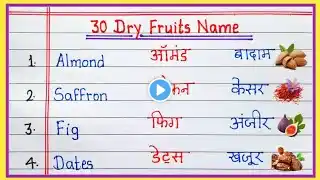 30 Dry Fruits Name
1. Almond ऑमंड बादाम
2. Saffron केसर
3. Fig फिग अंजीर
4. Dates डेट्स खजूर